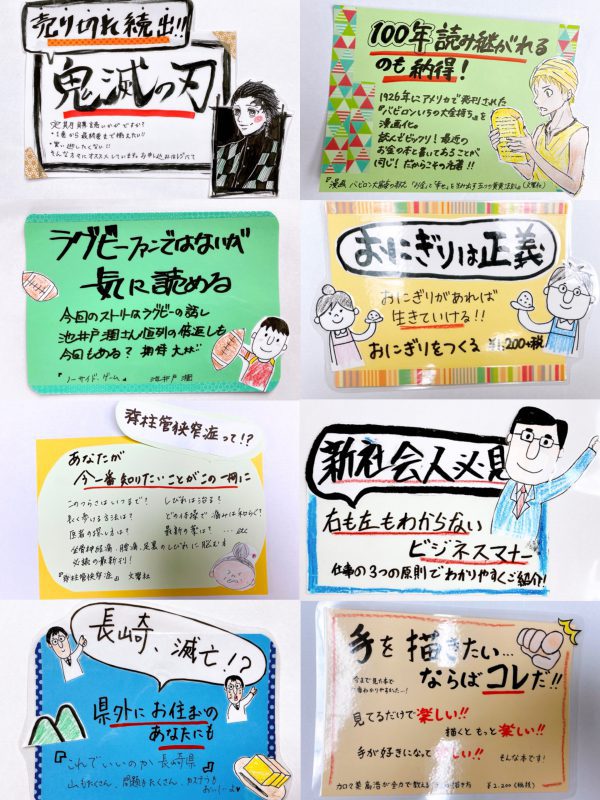 売り切れ続出!!
鬼滅の刃
定期購読いかがですか?
・1巻から最終巻まで揃えたい!!
・買い逃したくない!!
100年読み継がれる
のも納得!
1926年にアメリカで発刊された
『バビロンいちの大金持ち』を
漫画化。
読んでビックリ!最近の
お金の本と書いてあることが
同じ!だからこその名著!!
ラグビーファンではないが
一気に読める
今回のストーリーはラグビーの話し
池井戸潤さん恒例の倍返しも
今回もある?期待大だ
『ノーサイド・ゲーム』 池井戸 潤
おにぎりは正義
おにぎりがあれば
生きていける!!
おにぎりをつくる ¥1,200+税
脊柱管狭窄症って!?
あなたが
今一番知りたいことがこの一冊に
このつらさはいつまで? しびれは治る?
長く歩ける方法は? どの体操で痛みは和らぐ?
医者の探し方は? 最新の薬は? … etc
坐骨神経痛、腰痛、足裏のしびれに悩む方
必読の最新刊!
『脊柱管狭窄症』 文響社
新社会人必見
右も左もわからない
ビジネスマナー
仕事の3つの原則でわかりやすくご紹介!
長崎、滅亡!?
県外にお住まいの
あなたにも
『これでいいのか 長崎県』
山もたくさん、問題もたくさん、カステラも
おいしいよ
手を描きたい…
ならばコレだ!!
今まで見た本で
一番わかりやすかった…!
見てるだけで楽しい!!
描くともっと楽しい!!
手が好きになって 楽しい!!
そんな本です!
カロマ 美高浩が全力で教える 描き方 ¥2,200(税抜)